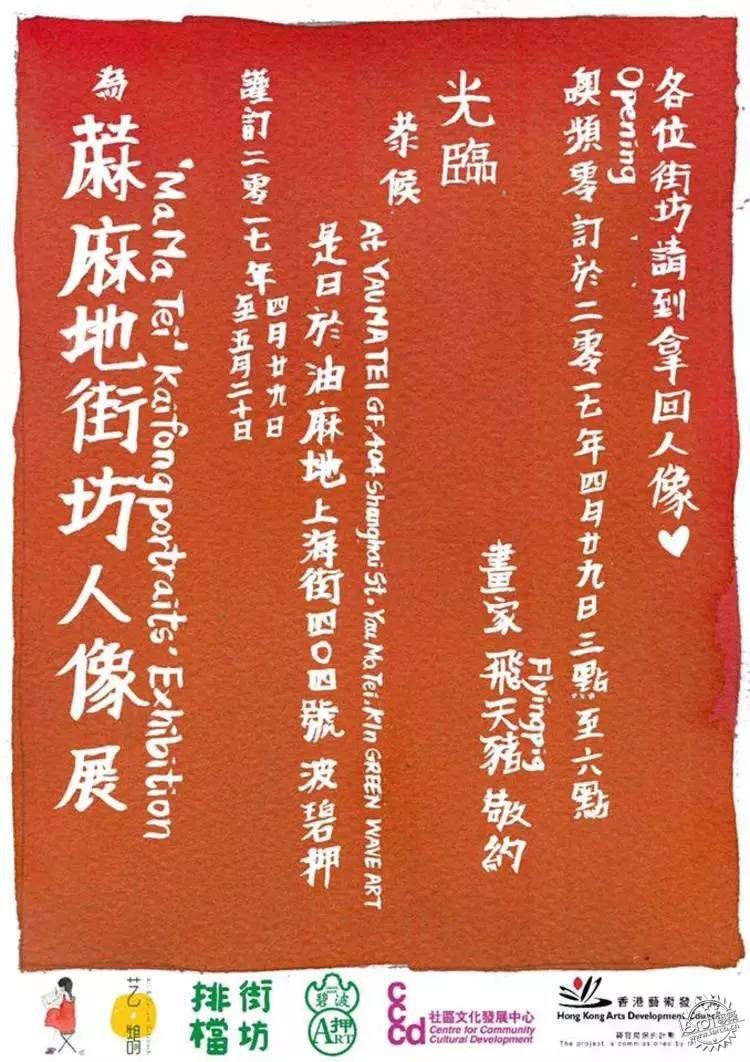 為 蔴麻地街坊人像展
'Ma Ma Tei' Kaifong portraits' Exhibition
謹訂二零一七年四月廿九日
至五月二十日
是日於油麻地上海街四〇四號 波碧押
At YAU MA TEI GF.404 Shanghai St. Yau Ma Tei. Kln GREEN WAVE ART
恭候
光臨
畫家 飛天豬 敬約
Flyingpig
噢頻零 訂於二零一七年四月廿九日三點至六點
Opening
各位街坊請到拿回人像♥
艺鵲
街坊
排檔
碧波
押
ART
cccd
社區文化發展中心
Centre for Community
Cultural Development
香港藝術發
Hong Kong Arts Development
The project is commissioned by